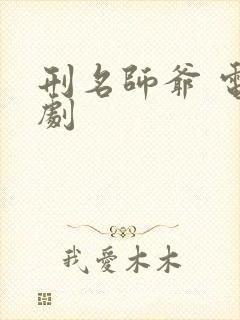 刑名師爺 電
劇
我愛木木